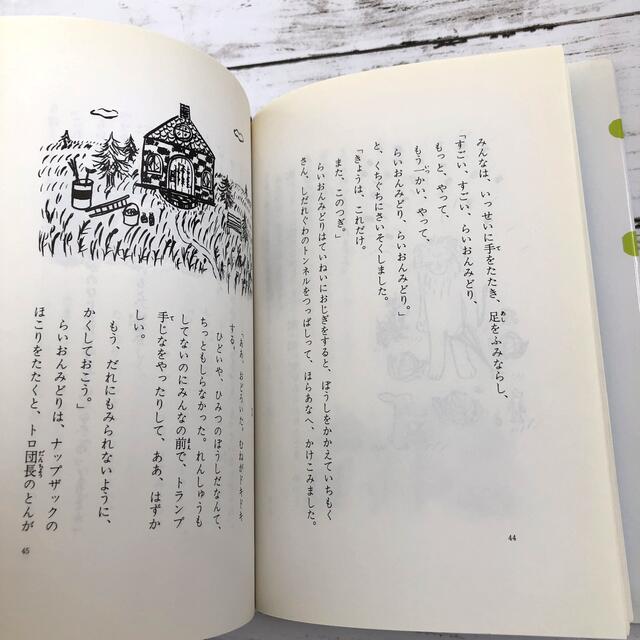 みんなは、いっせいに手をたたき、足をふみならし、
「すごい、すごい、らいおんみどり、
もっと、やって、
もう一かい、やって、
らいおんみどり、らいおんみどり。」
と、くちぐちにさいそくしました。
「きょうは、これだけ。
また、このつぎ。」
らいおんみどりはていねいにおじぎをすると、ぼうしをかかえていちもく
さん、しだれぐわのトンネルをつっぱしって、ほらあなへ、かけこみました。
44
「ああ、おどろいた。むねがドキドキ
する。
ひどいや、ひみつのぼうしだなんて、
ちっともしらなかった。れんしゅうも
してないのにみんなの前で、トランプ
手じなをやったりして、ああ、はずか
しい。
もう、だれにもみられないように、
かくしておこう。」
らいおんみどりは、ナップザックの
ほこりをたたくと、トロ団長のとんが
45